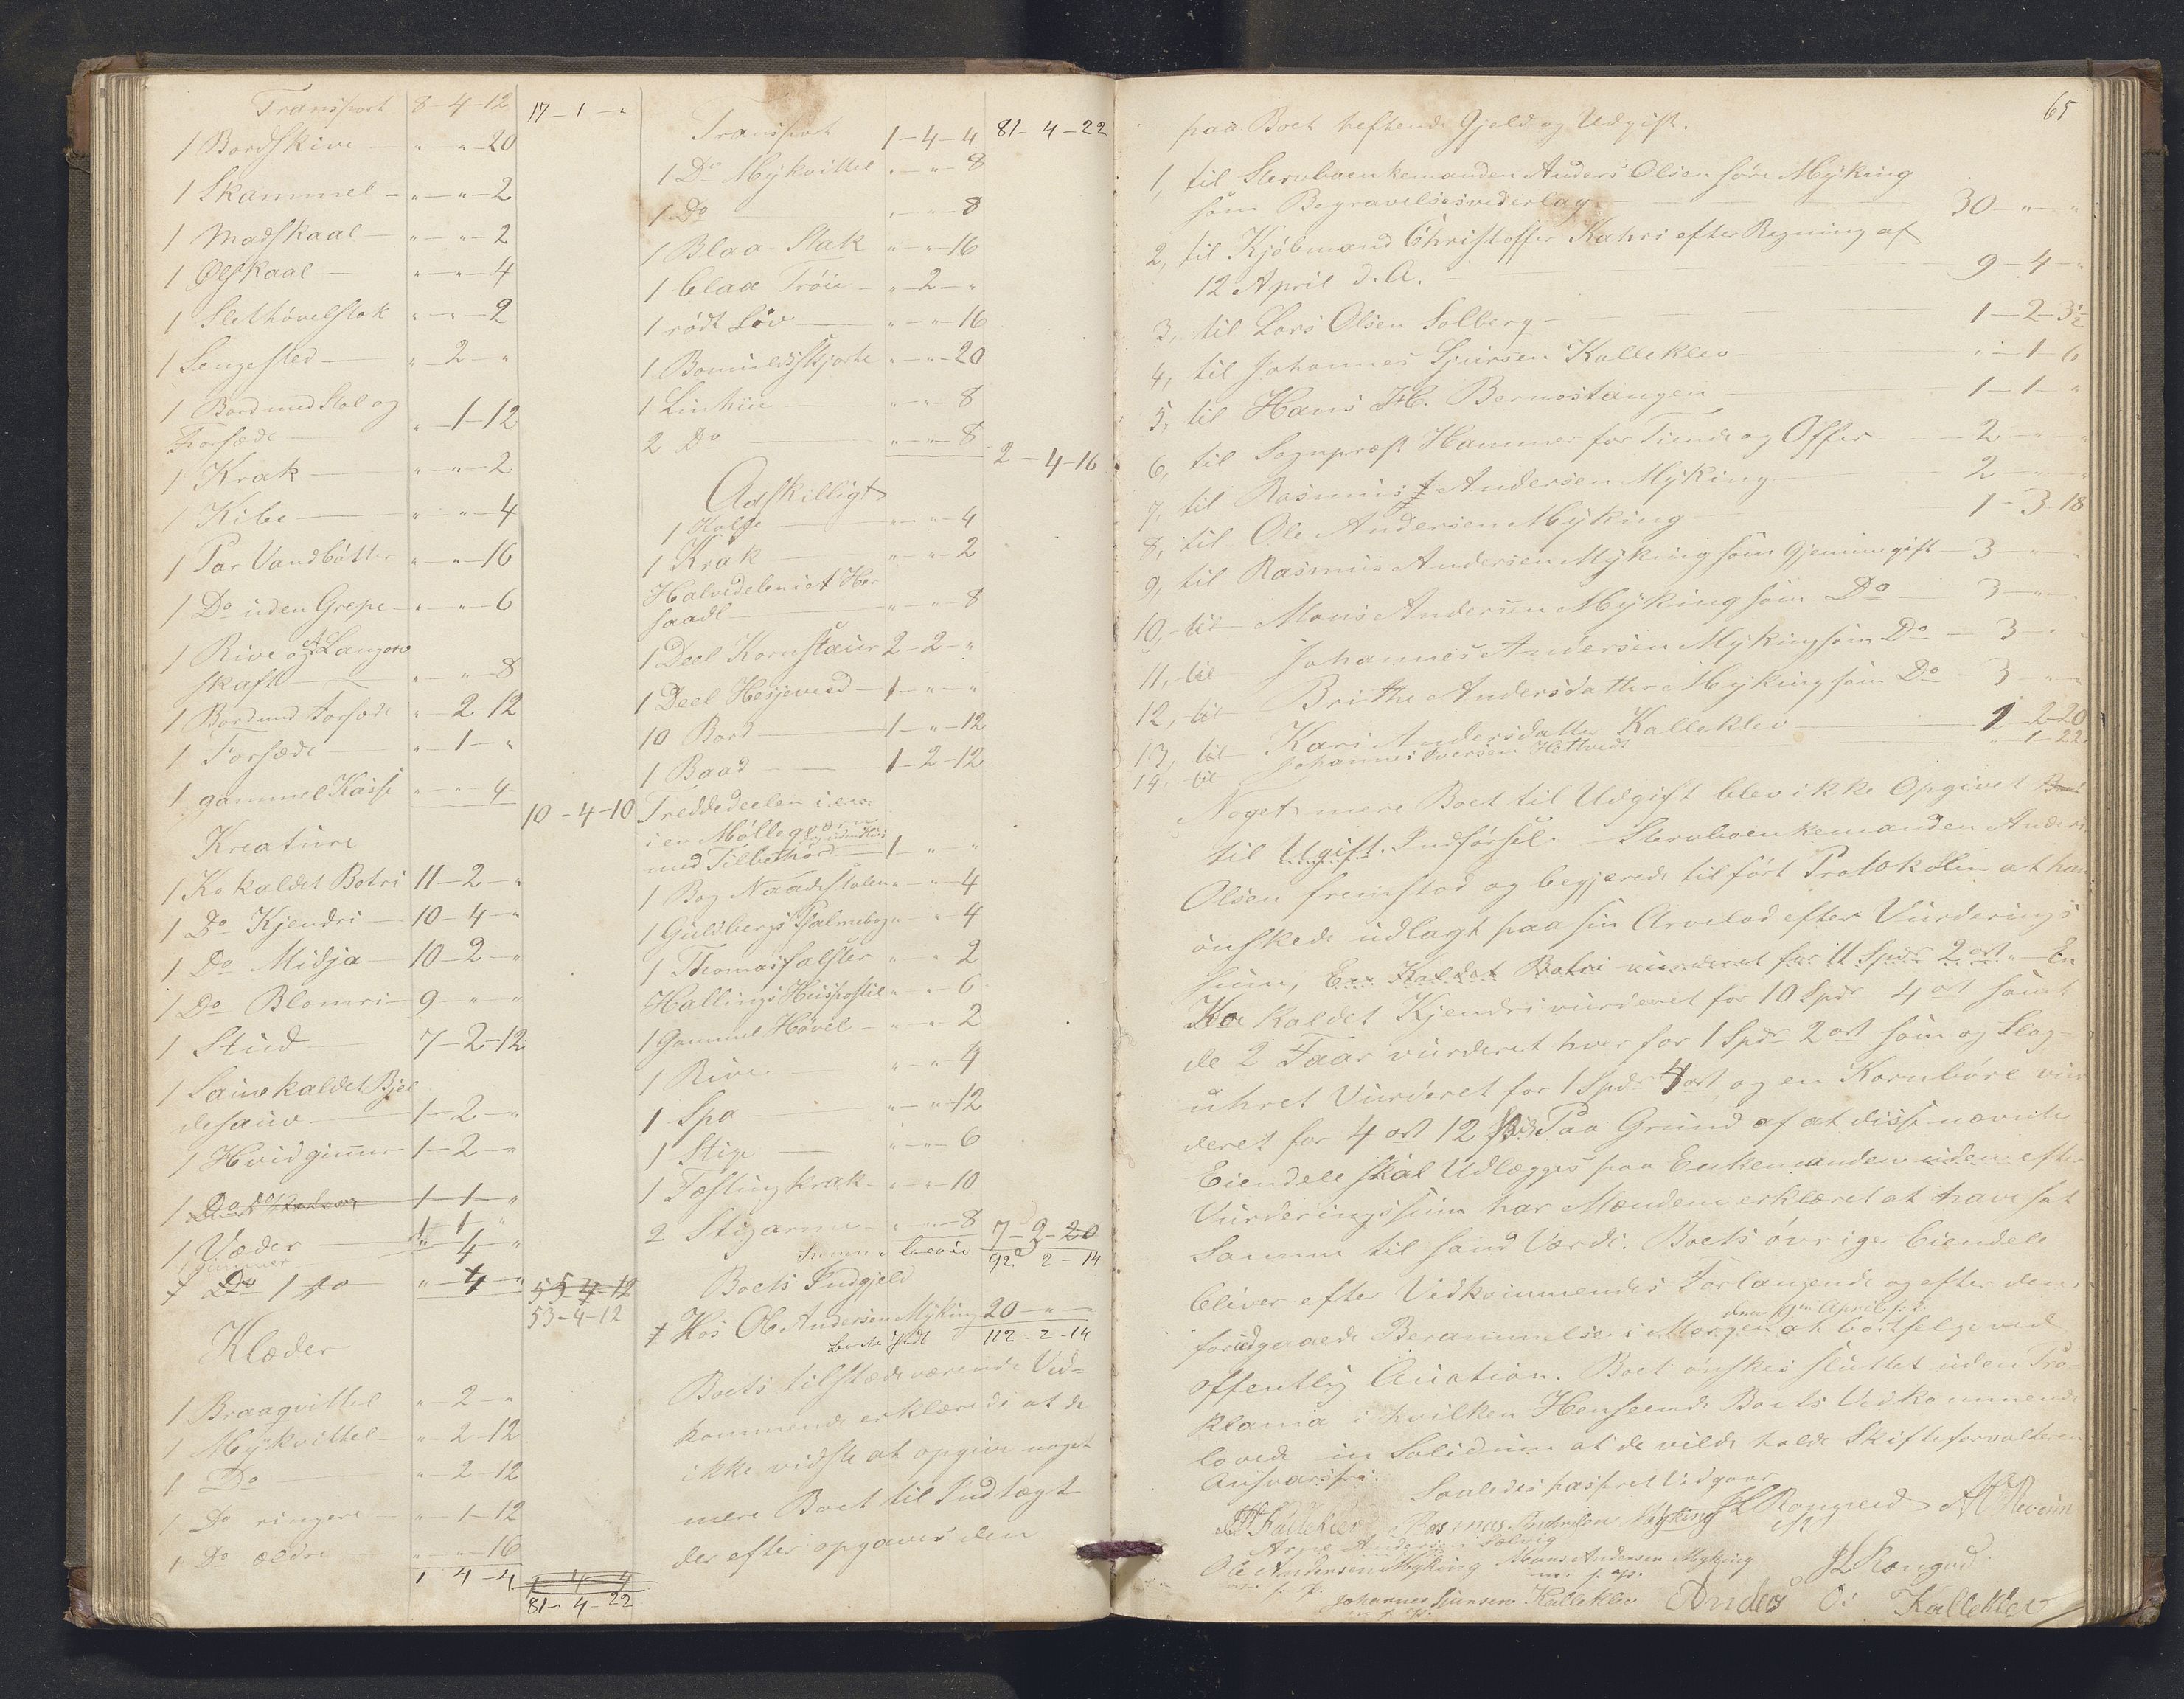 Transport 8-4-12 17-1-"
1 Bordskive — " " 20
1 Skammel — " " 2
1 Madskaal — " " 2
1 Ølskaal — " " 4
1 Slethøvelstok " " 2
1 Sengested — " 2 "
1 Bord med Stol og
Forsæde — " 1-12
1 Krak — " " 2
1 Kibe — " " 4
1 Par Vandbøtter " " 16
1 Do uden Grepe " " 6
1 Rive og et Langorv
skaft — " " 8
1 Bord med Forsæde " 2-12
1 Forsæde " 1 "
1 gammel Kasse " " 4
10-4-10
Kreature
1 Ko kaldet Botri 11-2-"
1 Do Kjendri — 10-4-"
1 Do Midja — 10-2-"
1 Do Blomri — 9-"-"
1 Stud — 7-2-12
1 Sauv kaldet Bjel
desauv — 1-2-"
1 Hvid gimmer 1-2-"
1 Do 1-1-"
1 Væder 1-1-"
gimmer " 4 "
Do 1 " 4 " 55-4-12
53-4-12
Klæder
1 Braagvittel " 2 "
1 Mykvittel — " 2-12
1 Do " 2-12
1 Do ringere " 1-12
1 Do ældre " " 16
1 4-4 1 4 4
81-4-22
Transport 1-4-4 81-4-22
1 Do Mykvittel " " 8
1 Do " " 8
1 Blaa Stak " " 16
1 blaa Trøie " 2 "
1 rødt Liv " " 16
1 Bomuldsskjorte " " 20
1 Linhue " " 8
2 Do " " 8
2-4-16
Adskilligt
1 " " 4
1 Krak " " 2
Halvedelen i et Her
saadl — " " 8
1 Deel Kornstaur 2-2-"
1 Deel Hesjeved 1-"-"
10 Bord 1-"-12
1 Baad 1-2-12
Treddedeelen i
i en Møllegværn
med Tilbehør 1 " "
1 Bog Naadestolen " " 4
1 Guldbergs Psalmebog " " 4
1 Thomas falster " " 2
Hallings Huuspostil " " 6
1 Gammel Høvel " " 2
1 Rive " " 4
1 Spa " " 12
1 Stige " " 6
1 Tæstling krak " " 10
2 Stigarme " " 8 7-2-20
Summa 92 2-14
Boets Indgjeld
Hos Ole Andersen Myking 20-"-"
112-2-14
Boets tilstædeværende Ved-
kommende erklærede at de
ikke vidste at opgive noget
mere Boet til Indtægt
der efter opgaves den
65
paa Boet heftende Gjeld og Udgift.
1, til Stervboenkemanden Anders Olsen søre Myking
som Begravelsesvederlag — 30 " "
2, til Kjøbmand Christoffer Kahrs efter Regning af
12 April d. A. — 9-4-"
3, til Lars Olsen Solberg — 1-2-3½
4, til Johannes Sjursen Kalleklev — " 1-6
5, til Hans H. Bernostangen — 1-1-"
6, til Sognpræst Hammer for Tiende og Offer — 2 " "
7, til Rasmus Andersen Myking — 2 " "
8, til Ole Andersen Myking — 1-3-18
9, til Rasmus Andersen Myking som Hjemmegift 3 " "
10, til Mons Andersen Myking som Do — 3 " "
11, til Johannes Andersen Myking som Do — 3 " "
12, til Brithe Andersdatter Myking som Do — 3 " "
13, til Kari Andersdatter Kalleklev — 1 2-20
14, til Johannes Iversen Hottvedt " 1-22
Noget mere Boet til Udgift blev ikke Opgivet
til Ugift. Indførsel. Stervboenkemanden Anders
Olsen fremstod og begjerede tilført Protokollen at han
ønskede udlagt paa sin Arvelod efter Vurderings
sum, Een Kaldet Botri vurderet for 11 Spdr 2 ort — En
Koe Kaldet Kjendri vurderet for 10 Spdr 4 ort samt
de 2 Faar vurderet hver for 1 Spdr 2 ort som og Slag-
uhret Vurderet for 1 Spdr 4 ort, og en Kornbøre vur
deret for 4 ort 12 s. Paa Grund af at disse nævnte
Eiendele skal Udlægges paa Enkemanden uden efter
Vurderingssum har Mændene erklæret at have sat
Samme til sand Værdi. Boets øvrige Eiendele
bliver efter Vedkommendes Forlangende og efter den
den 19de April
forudgaaede Berammelse i Morgen at bortselge ved
offentlig Auction. Boet ønskes sluttet uden Pro-
klama i hvilken Henseende Boets Vedkommende
lovede in Solidum at de vilde holde Skifteforvalteren
Ansvarsfri.
Saaledes passeret Vidgaar
Kalleklev Rasmus Andersen Myking Rongved
Arne Andersen Solvig
Ole Andersen Myking Mons Andersen Myking
m. f. P. m. f. P. Rongved
Johannes Sjursen Kalleklev Anders O: Kalleklev
m. f. P.